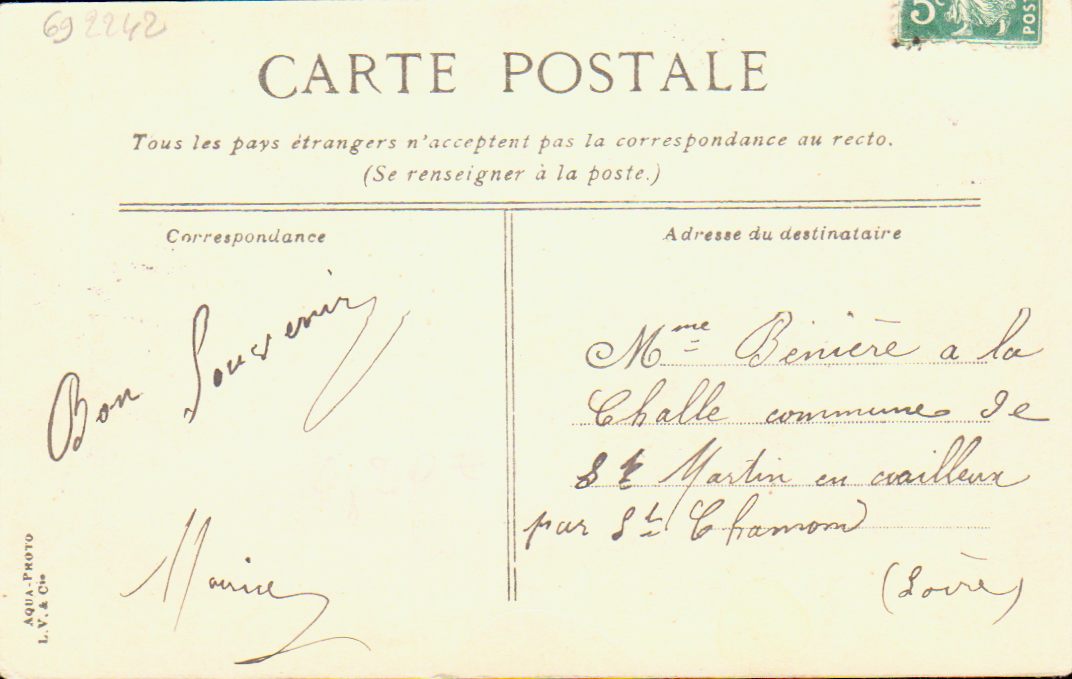 69 2242
5c
POST
CARTE POSTALE
Tous les pays étrangers n'acceptent pas la correspondance au recto.
(Se renseigner à la poste.)
Correspondance
Adresse du destinataire
Bon Souvenir
Maurice
Mme Benière a la
Challe commune de
St Martin en coailleux
par St Chamond
(Loire)
AQUA-PHOTO
L.V. & Cie